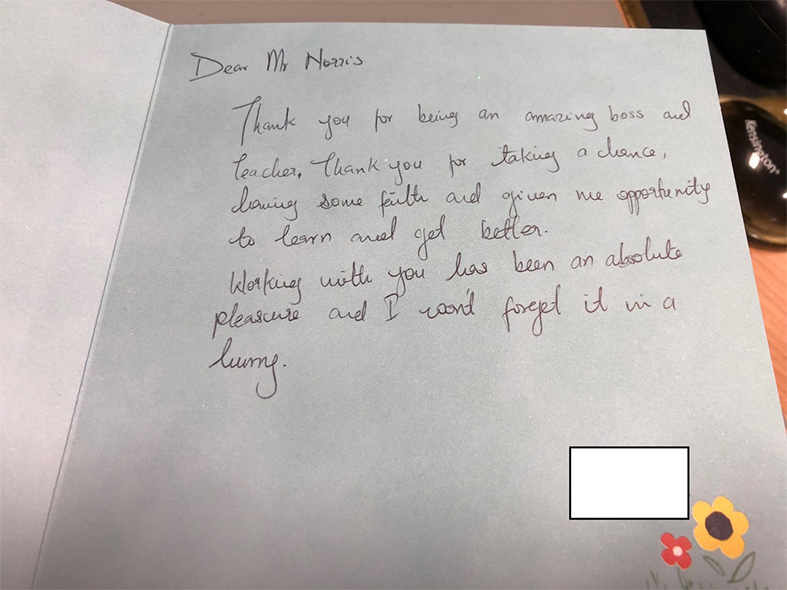 Dear Mr Norris
Thank you for being an amazing boss and
teacher. Thank you for taking a chance,
having some faith and given me opportunity
to learn and get better.
Working with you has been an absolute
pleasure and I won't forget it in a
hurry.
Kensington®